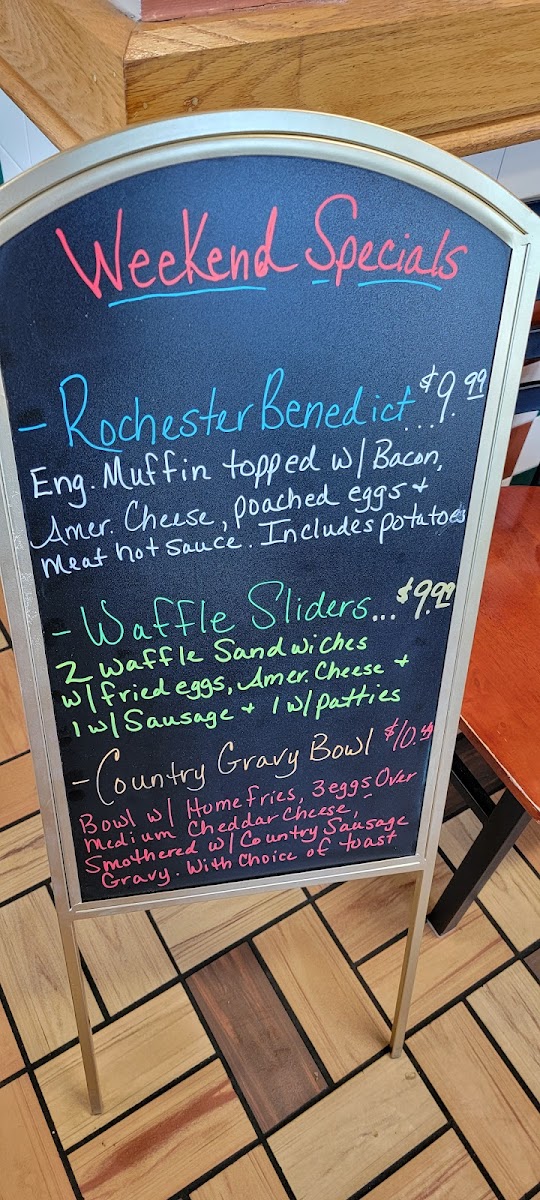 Weekend Specials
- Rochester Benedict...$9.99
Eng. Muffin topped w/ Bacon,
Amer. Cheese, poached eggs +
meat hot sauce. Includes potatoes
- Waffle Sliders...$9.99
2 waffle Sandwiches
w/ fried eggs, Amer. Cheese +
1 w/ Sausage + 1 w/ patties
- Country Gravy Bowl $10.49
Bowl w/ Home fries, 3 eggs Over
medium Cheddar Cheese,
Smothered w/ Country Sausage
Gravy. With Choice of toast